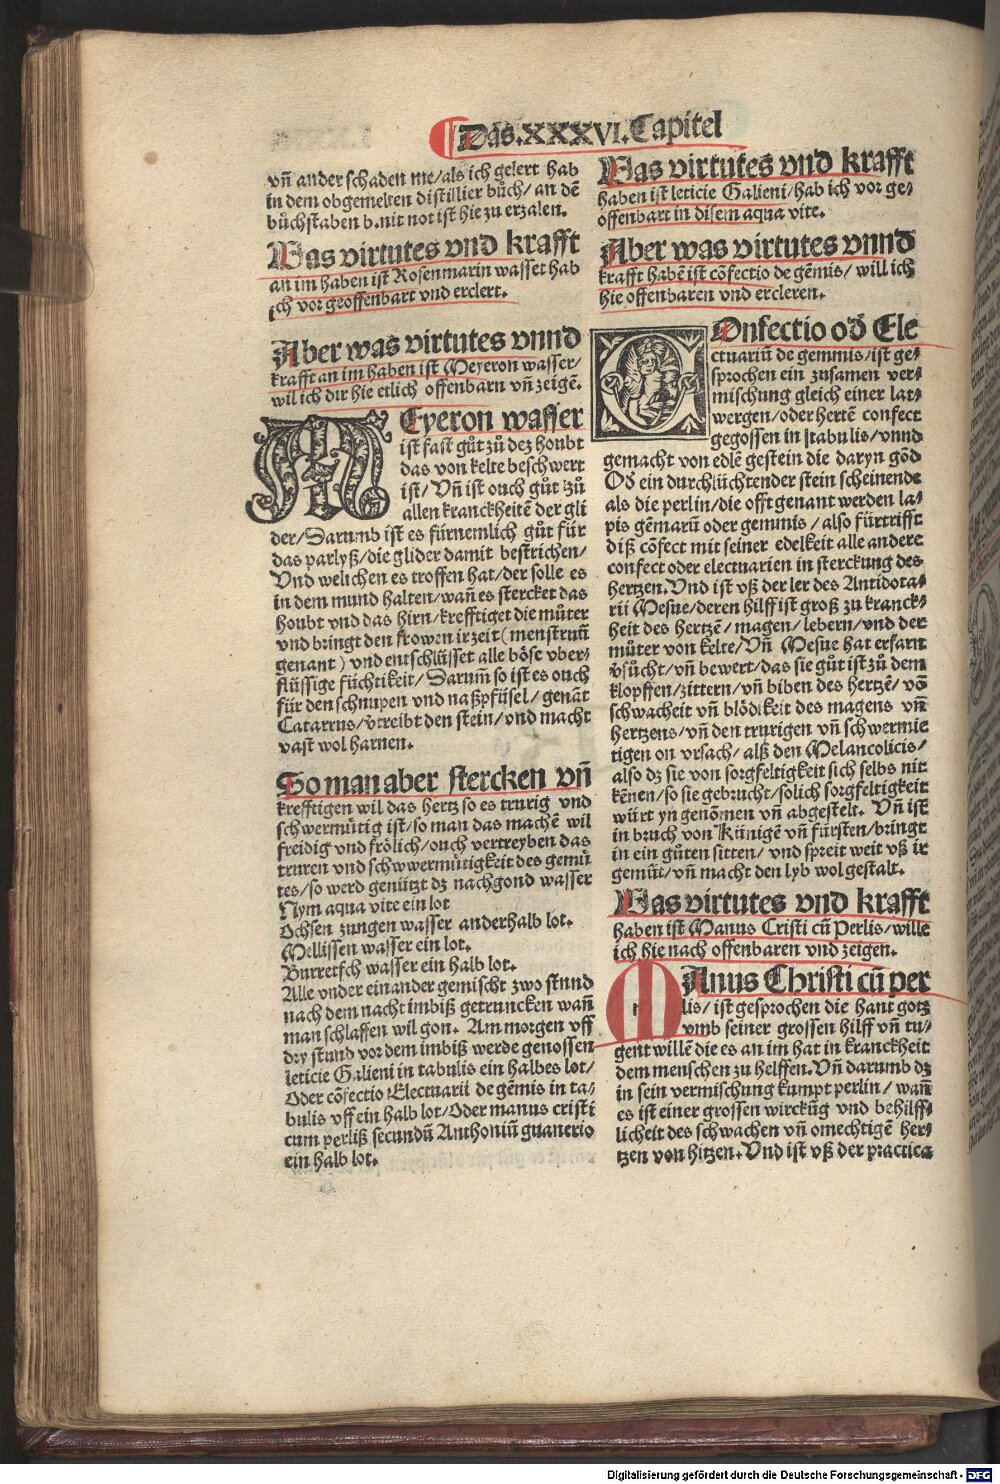 Das.XXXVI.Capitel
vn̄ ander schaden me/als ich gelert hab
in dem obgemelten distillier bůch/an dē
bůchstaben b.nit not ist hie zu erzalen.
Was virtutes vnd krafft
an im haben ist Rosenmarin wasser hab
ich vor geoffenbart vnd erclert.
Aber was virtutes vnnd
krafft an im haben ist Meyeron wasser/
wil ich dir hie etlich offenbarn vn̄ zeigē.
MEyeron wasser
ist fast gůt zů dez houbt
das von kelte beschwert
ist/ Vn̄ ist ouch gůt tzů
allen kranckheitē der gli
der/Darumb ist es fürnemlich gůt für
das parlyß/die glider damit bestrichen/
Vnd welichen es troffen hat/der solle es
in dem mund halten/wan̄ es stercket das
houbt vnd das hirn/krefftiget die můter
vnd bringt den frowen ir zeit (menstruū
genant) vnd entschlüsset alle böse vber⸗
flüssige füchtikeit/Darum̄ so ist es ouch
für den schnupen vnd naßpfüsel/genāt
Catarrus/v̈treibt den stein/vnd macht
vast wol harnen.
So man aber stercken vn̄
krefftigen wil das hertz so es trurig vnd
schwermütig ist/so man das machē wil
freidig vnd frölich/ouch vertreyben das
truren vnd schwwermütigkeit des gemü
tes/so werd genützt dz nachgond wasser
Nym aqua vite ein lot
Ochsen zungen wasser anderhalb lot.
Mellissen wasser ein lot.
Burretsch wasser ein halb lot.
Alle vnder einander gemischt zwo stund
nach dem nacht imbiß getruncken wan̄
man schlaffen wil gon. Am morgen vff
dry stund vor dem imbiß werde genossen
leticie Galieni in tabulis ein halbes lot/
Oder cōfectio Electuarii de gēmis in ta⸗
bulis vff ein halb lot/Oder manus cristi
cum perliß secundū Anthoniū guanerio
ein halb lot.
Was virtutes vnd krafft
haben ist leticie Galieni/hab ich vor ge⸗
offenbart in disem aqua vite.
Aber was virtutes vnnd
krafft habē ist cōfectio de gēmis/ will ich
hie offenbaren vnd ercleren.
COnfectio od̄ Ele
ctuariū de gemmis/ist ge⸗
sprochen ein zusamen ver⸗
mischung gleich einer lat⸗
wergen/oder hertē confect
gegossen in stabulis/vnnd
gemacht von edlē gestein die daryn gōd
Od̄ ein durchlüchtender stein scheinende
als die perlin/die offt genant werden la⸗
pis gēmarū oder gemmis / also fürtrifft
diß cōfect mit seiner edelkeit alle andere
confect oder electuarien in sterckung des
hertzen.Vnd ist vß der ler des Antidota⸗
rii Mesue/deren hilff ist groß zu kranck⸗
heit des hertzē/ magen/ lebern/ vnd der
můter von kelte/Vn̄ Mesue hat erfarn
v̈sücht/vn̄ bewert/das sie gůt ist zů dem
klopffen/zittern/vn̄ biben des hertzē/ vō
schwacheit vn̄ blödikeit des magens vn̄
hertzens/vn̄ den trurigen vn̄ schwermie
tigen on vrsach/ alß den Melancolicis/
also dz sie von sorgfeltigkeit sich selbs nit
kēnen/so sie gebrucht/solich sorgfeltigkeit
würt yn genōmen vn̄ abgestelt. Vn̄ ist
in bruch von Künigē vn̄ fürsten/bringt
in ein gůten sitten/ vnd spreit weit vß ir
gemüt/vn̄ macht den lyb wol gestalt.
Was virtutes vnd krafft
haben ist Manus Cristi cū Perlis/wille
ich hie nach offenbaren vnd zeigen.
MAnus Christi cū per
lis/ ist gesprochen die hant gotz
vmb seiner grossen hilff vn̄ tu⸗
gent willē die es an im hat in kranckheit
dem menschen zu helffen.Vn̄ darumb dz
in sein vermischung kumpt perlin/ wan̄
es ist einer grossen wirckūg vnd behilff⸗
licheit des schwachen vn̄ omechtigē her⸗
tzen von hitzen.Vnd ist vß der practica
Digitalisierung gefördert durch die Deutsche Forschungsgemeinschaft - DFG